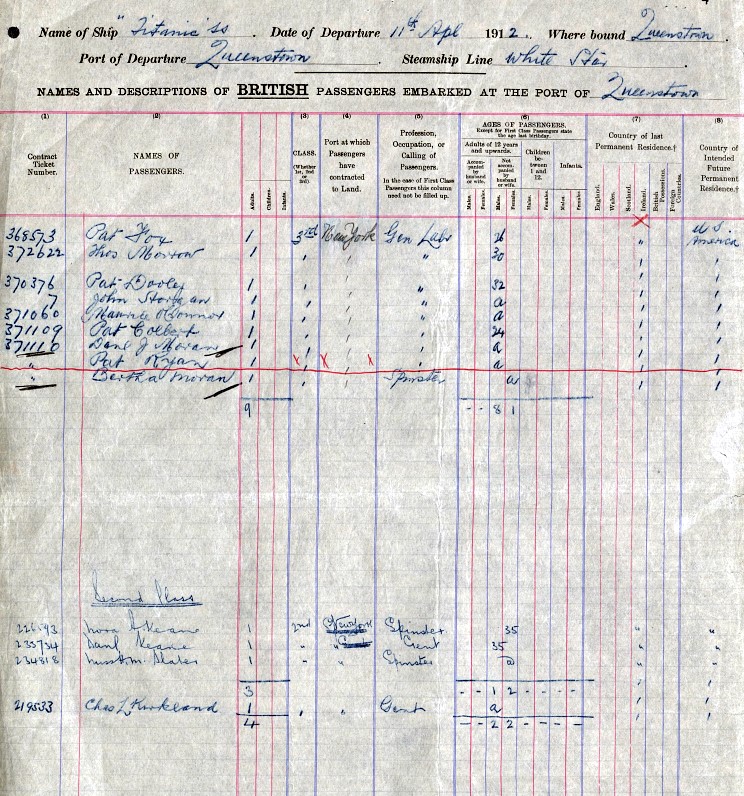 Name of Ship "Titanic" ss Date of Departure 11th Apl 1912. Where bound Queenstown
Port of Departure Queenstown. Steamship Line White Star.
NAMES AND DESCRIPTIONS OF BRITISH PASSENGERS EMBARKED AT THE PORT OF Queenstown
(1) (2) (3) (4) (5) (6) (7) (8)
Contract Ticket Number.
NAMES OF PASSENGERS.
Adults. Children. Infants.
CLASS. (Whether 1st, 2nd or 3rd).
Port at which Passengers have contracted to Land.
Profession, Occupation, or Calling of Passengers.
In the case of First Class Passengers this column need not be filled up.
AGES OF PASSENGERS.
Except for First Class Passengers state the age last birthday.
Adults of 12 years and upwards. Children between 1 and 12. Infants.
Accompanied by husband or wife. Not accompanied by husband or wife.
Males. Females. Males. Females. Males. Females. Males. Females.
Country of last Permanent Residence.†
England. Wales. Scotland. Ireland. British Possessions. Foreign Countries.
Country of Intended Future Permanent Residence.†
368573 Pat Fox 1 3rd New York Gen Labr 26 " U.S. America
372622 Thos Morrow 1 " " " 30 " "
370376 Pat Dooley 1 " " " 32 " "
" 7 John Storgan 1 " " " a " "
371060 Maurice O'Connor 1 " " " a " "
371109 Pat Colbert 1 " " " 24 " "
371110 Danl J Moran 1 " " " a " "
" Pat Ryan 1 X X X a " "
" Bertha Moran 1 " " Spinster a " "
9 - - 8 1
Second Class
Nora A Keane 1 2nd New York Spinster 35 " "
233734 Danl Keane 1 " " Gent 35 " "
234818 1 " " Spinster a " "
3 - - 1 2 - - - -
219533 Chas L Kirkland 1 " " Gent a " "
4 - - 2 2 - - - -